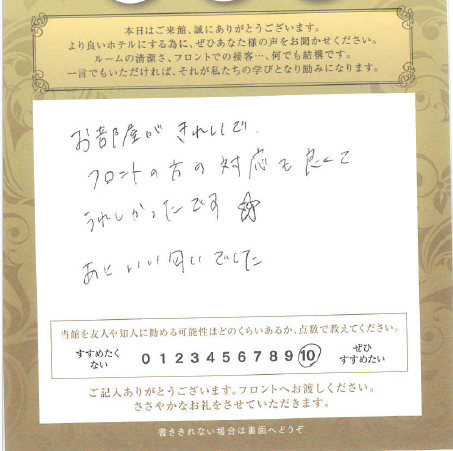 本日はご来館、誠にありがとうございます。
より良いホテルにする為に、ぜひあなた様の声をお聞かせください。
ルームの清潔さ、フロントでの接客…、何でも結構です。
一言でもいただければ、それが私たちの学びとなり励みになります。
お部屋がきれいで、
フロントの方の対応も良くて
うれしかったです☆
あといい匂いでした
当館を友人や知人に勧める可能性はどのくらいあるか、点数で教えてください。
すすめたくない 0 1 2 3 4 5 6 7 8 9 10 ぜひすすめたい
ご記入ありがとうございます。フロントへお渡しください。
ささやかなお礼をさせていただきます。
書ききれない場合は裏面へどうぞ